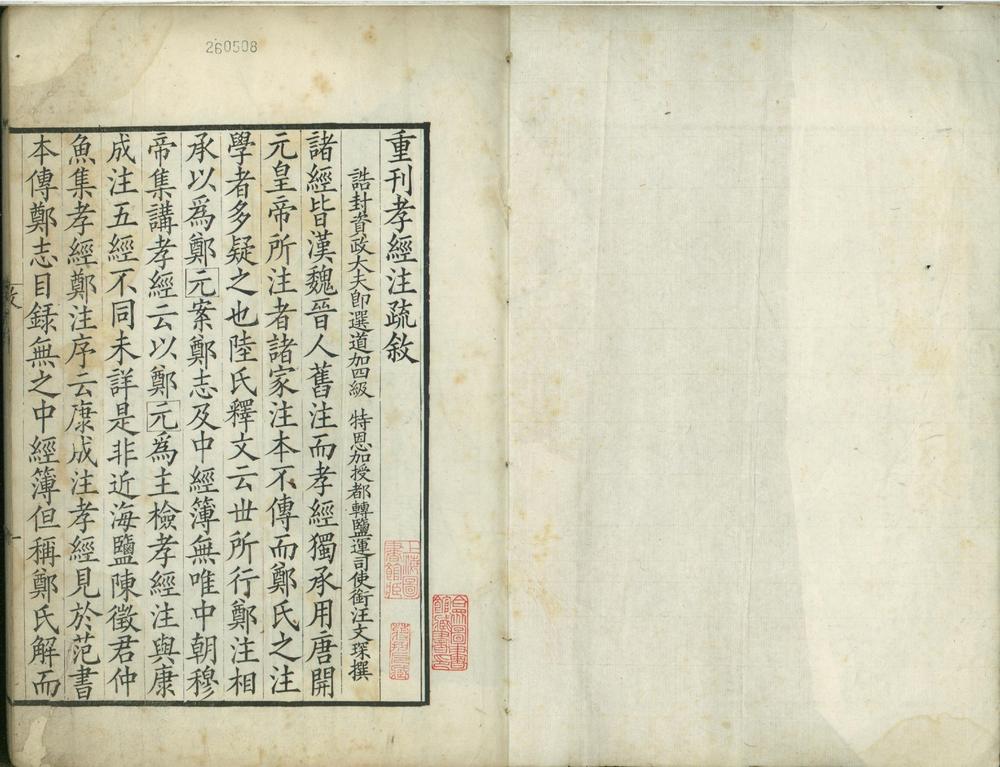 260508
重刊孝經注疏敘
誥封資政大夫即選道加四級 特恩加授都轉鹽運司使銜汪文琛撰
諸經皆漢魏晉人舊注而孝經獨承用唐開
元皇帝所注者諸家注本不傳而鄭氏之注
學者多疑之也陸氏釋文云世所行鄭注相
承以爲鄭元案鄭志及中經簿無唯中朝穆
帝集講孝經云以鄭元爲主檢孝經注與康
成注五經不同未詳是非近海鹽陳徵君仲
魚集孝經鄭注序云康成注孝經見於范書
本傳鄭志目録無之中經簿但稱鄭氏解而
上海圖書館藏